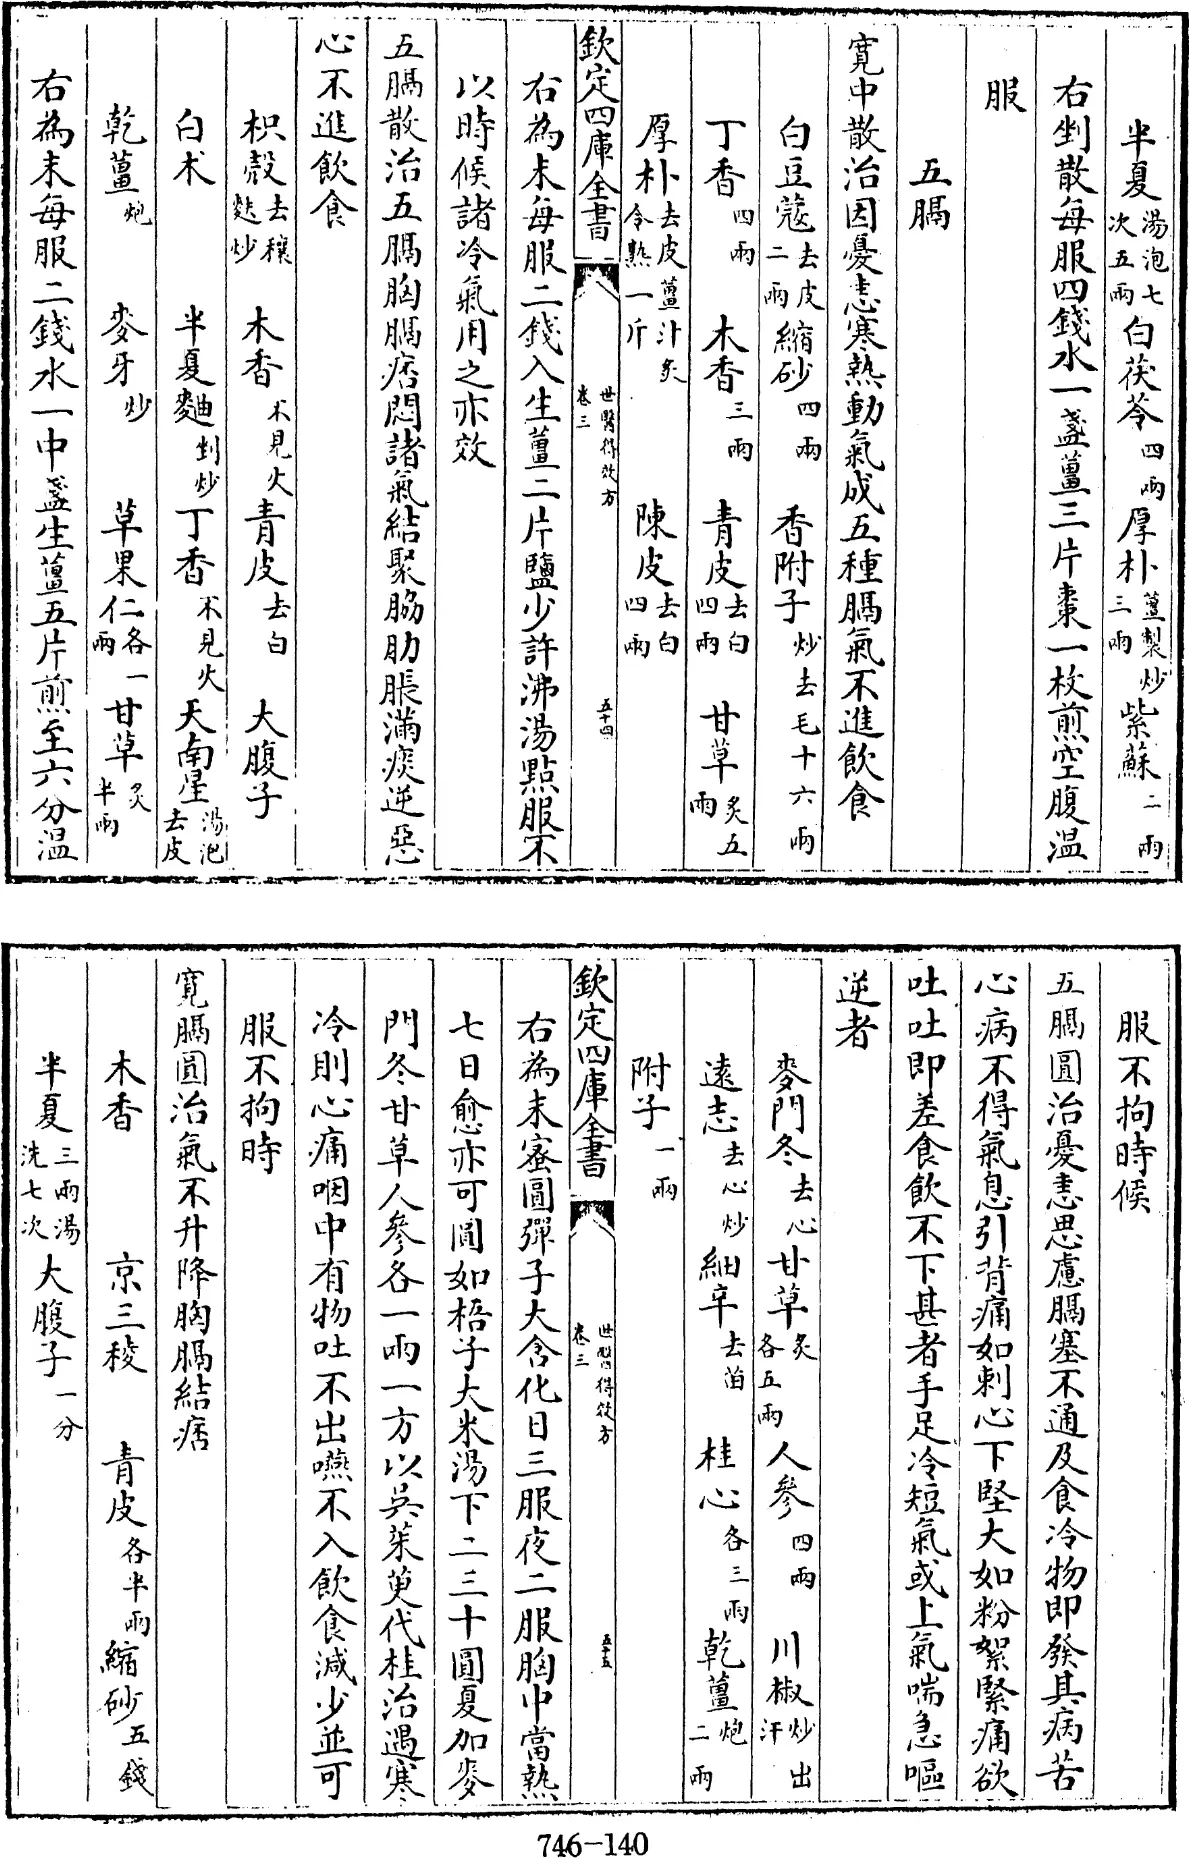 半夏湯泡七次五兩白茯苓四兩厚朴薑製炒三兩紫蘇二兩
右剉散每服四錢水一盞薑三片棗一枚煎空腹温
服
五膈
寛中散治因憂恚寒熱動氣成五種膈氣不進飲食
白豆蔻去皮二兩縮砂四兩香附子炒去毛十六兩
丁香四兩木香三兩青皮去白四兩甘草炙五兩
厚朴去皮薑汁炙令熟一斤陳皮去白四兩
欽定四庫全書
世醫得效方
卷三
五十四
右為末每服二錢入生薑二片鹽少許沸湯點服不
以時候諸冷氣用之亦效
五膈散治五膈胸膈痞悶諸氣結聚脇肋脹滿痰逆惡
心不進飲食
枳殼去穰麩炒木香不見火青皮去白大腹子
白术半夏麯剉炒丁香不見火天南星湯泡去皮
乾薑炮麥牙炒草果仁各一兩甘草炙半兩
右為末每服二錢水一中盞生薑五片煎至六分温
服不拘時候
五膈圓治憂恚思慮膈塞不通及食冷物即發其病苦
心病不得氣息引背痛如刺心下堅大如粉絮緊痛欲
吐吐即差食飲不下甚者手足冷短氣或上氣喘急嘔
逆者
麥門冬去心甘草炙各五兩人參四兩川椒炒出汗
遠志去心炒細辛去苗桂心各三兩乾薑炮二兩
附子一兩
欽定四庫全書
世醫得效方
卷三
五十五
右為末蜜圓彈子大含化日三服夜二服胸中當熱
七日愈亦可圓如梧子大米湯下二三十圓夏加麥
門冬甘草人參各一兩一方以吳茱萸代桂治遇寒
冷則心痛咽中有物吐不出嚥不入飲食減少並可
服不拘時
寛膈圓治氣不升降胸膈結痞
木香京三稜青皮各半兩縮砂五錢
半夏三兩湯洗七次大腹子一分
746-140